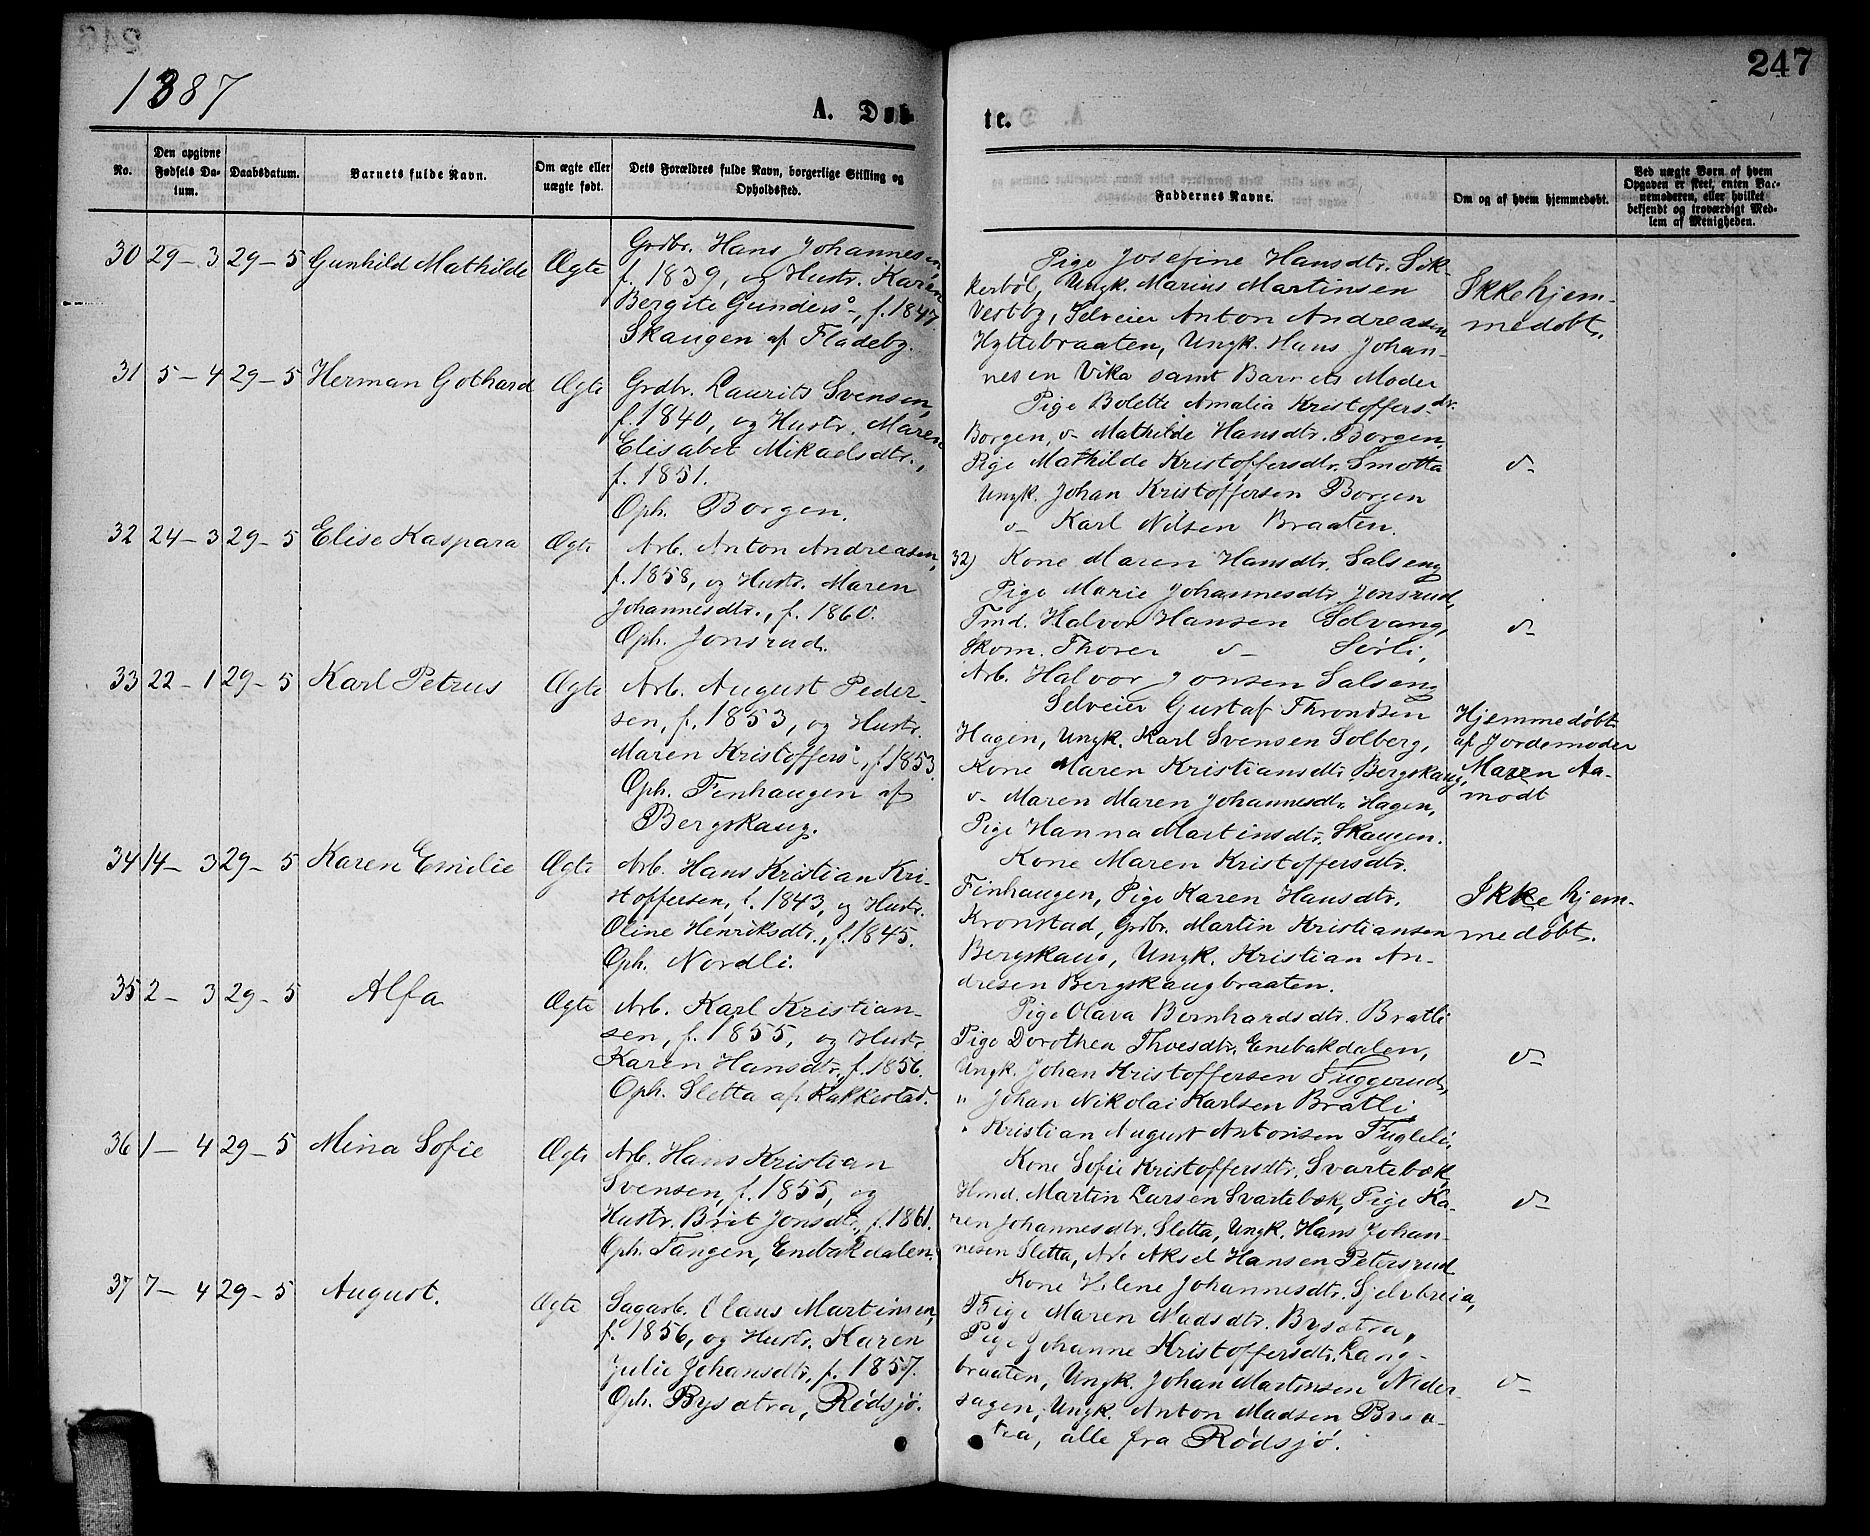 247
1887
A. Døb-
te.
No.
Den opgivne Fødsels Da- tum.
Daabsdatum.
Barnets fulde Navn.
Om ægte eller uægte født.
Dets Forældres fulde Navn, borgerlige Stilling og Opholdssted.
Faddernes Navne.
Om og af hvem hjemmedøbt.
Ved uægte Børn af hvem Opgaven er skeet, enten Bar- nemoderen, eller hvilket bekjendt og troværdigt Med- lem af Menigheden.
30 29-3 29-5 Gunhild Mathilde Ægte
Grdbr. Hans Johannesen,
f. 1839, og Hustr. Karen
Bergite Gunders°, f. 1847
Skaugen af Fladeby.
Pige Josefine Hansdtr. Sik-
kerbøl, Ungk. Marius Martinsen
Vestby, Selveier Anton Andreasen
Hyttebraaten, Ungk. Hans Johan-
nesen Vika samt Barnets Moder
Ikke hjem-
medøbt.
31 5-4 29-5 Herman Gothard Ægte
Grdbr. Laurits Svensen,
f. 1840, og Hustr. Maren
Elisabet Mikaelsdtr.,
f. 1851.
Oph. Borgen.
Pige Bolette Amalia Kristoffersdr.
Borgen, v- Mathilde Hansdtr. Borgen,
Pige Mathilde Kristoffersdtr. Smotta
Ungk. Johan Kristoffersen Borgen
v- Karl Nilsen Braaten.
v-
32 24-3 29-5 Elise Kaspara Ægte
Arb. Anton Andreasen,
f. 1858, og Hustr. Maren
Johannesdtr., f. 1860.
Oph. Jonsrud.
32) Kone Maren Hansdtr. Salseng
Pige Marie Johannesdtr. Jonsrud,
Tmd. Halvor Hansen Solvang,
Skom. Thorer v- Sørli,
Arb. Halvor Jonsen Salseng
v-
33 22-1 29-5 Karl Petrus Ægte
Arb. August Peder-
sen, f. 1853, og Hustr.
Maren Kristoffers°, f. 1853.
Oph. Finhaugen af
Bergskaug.
Selveier Gustaf Throndsen
Hagen, Ungk. Karl Svensen Solberg,
Kone Maren Kristiansdtr. Bergskaug,
v- Maren Maren Johannesdtr. Hagen,
Pige Hanna Martinsdtr. Skaugen.
Hjemmedøbt
af Jordemoder
Maren Aa-
modt
34 14-3 29-5 Karen Emilie Ægte
Arb. Hans Kristian Kri-
stoffersen, f. 1843, og Hustr.
Oline Henriksdtr., f. 1845.
Oph. Nordli.
Kone Maren Kristoffersdtr.
Finhaugen, Pige Karen Hansdtr.
Kronstad, Grdbr. Martin Kristiansen
Bergskaug, Ungk. Kristian An-
dresen Bergskaugbraaten.
Ikke hjem-
medøbt.
35 2-3 29-5 Alfa Ægte
Arb. Karl Kristian-
sen, f. 1855, og Hustr.
Karen Hansdtr., f. 1856.
Oph. Sletta af Rakkestad.
Pige Olava Bernhardsdtr. Bratli
Pige Dorothea Thvesdtr. Enebakdalen,
Ungk. Johan Kristoffersen Fuggerud,
" Johan Nikolai Karlsen Bratli,
" Kristian August Antonsen Fugleli,
v-
36 1-4 29-5 Mina Sofie Ægte
Arb. Hans Kristian
Svensen, f. 1855, og
Hustr. Brit Jonsdtr., f. 1861.
Oph. Tangen, Enebakdalen.
Kone Sofie Kristoffersdtr. Svartebæk,
Hmd. Martin Larsen Svartebæk, Pige Ka-
ren Johannesdtr. Sletta, Ungk. Hans Johan-
nesen Sletta, Arb. Aksel Hansen Petersrud
v-
37 7-4 29-5 August. Ægte
Sagarb. Claus Martinsen,
f. 1856, og Hustr. Karen
Julie Johansdtr., f. 1857.
Oph. Bysætra, Rødsjø.
Kone Helene Johannesdtr. Sjelvbreia,
Pige Maren Madsdtr. Bysætra,
Pige Johanne Kristoffersdtr. Lang-
braaten, Ungk. Johan Martinsen Neder-
sagen, Ungk. Anton Madsen Bysæ-
tra, alle fra Rødsjø.
v-